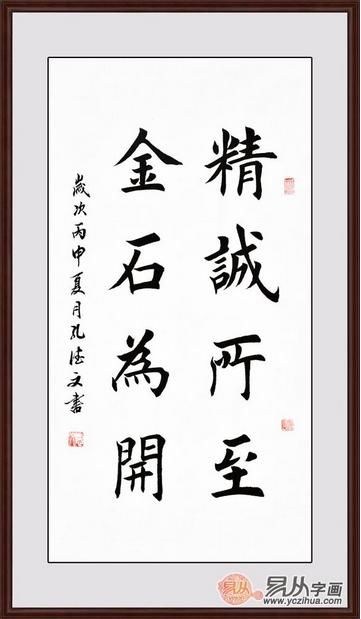 精誠所至
金石為開
歲次丙申夏月孔德文書
易从字画
www.yczihua.com